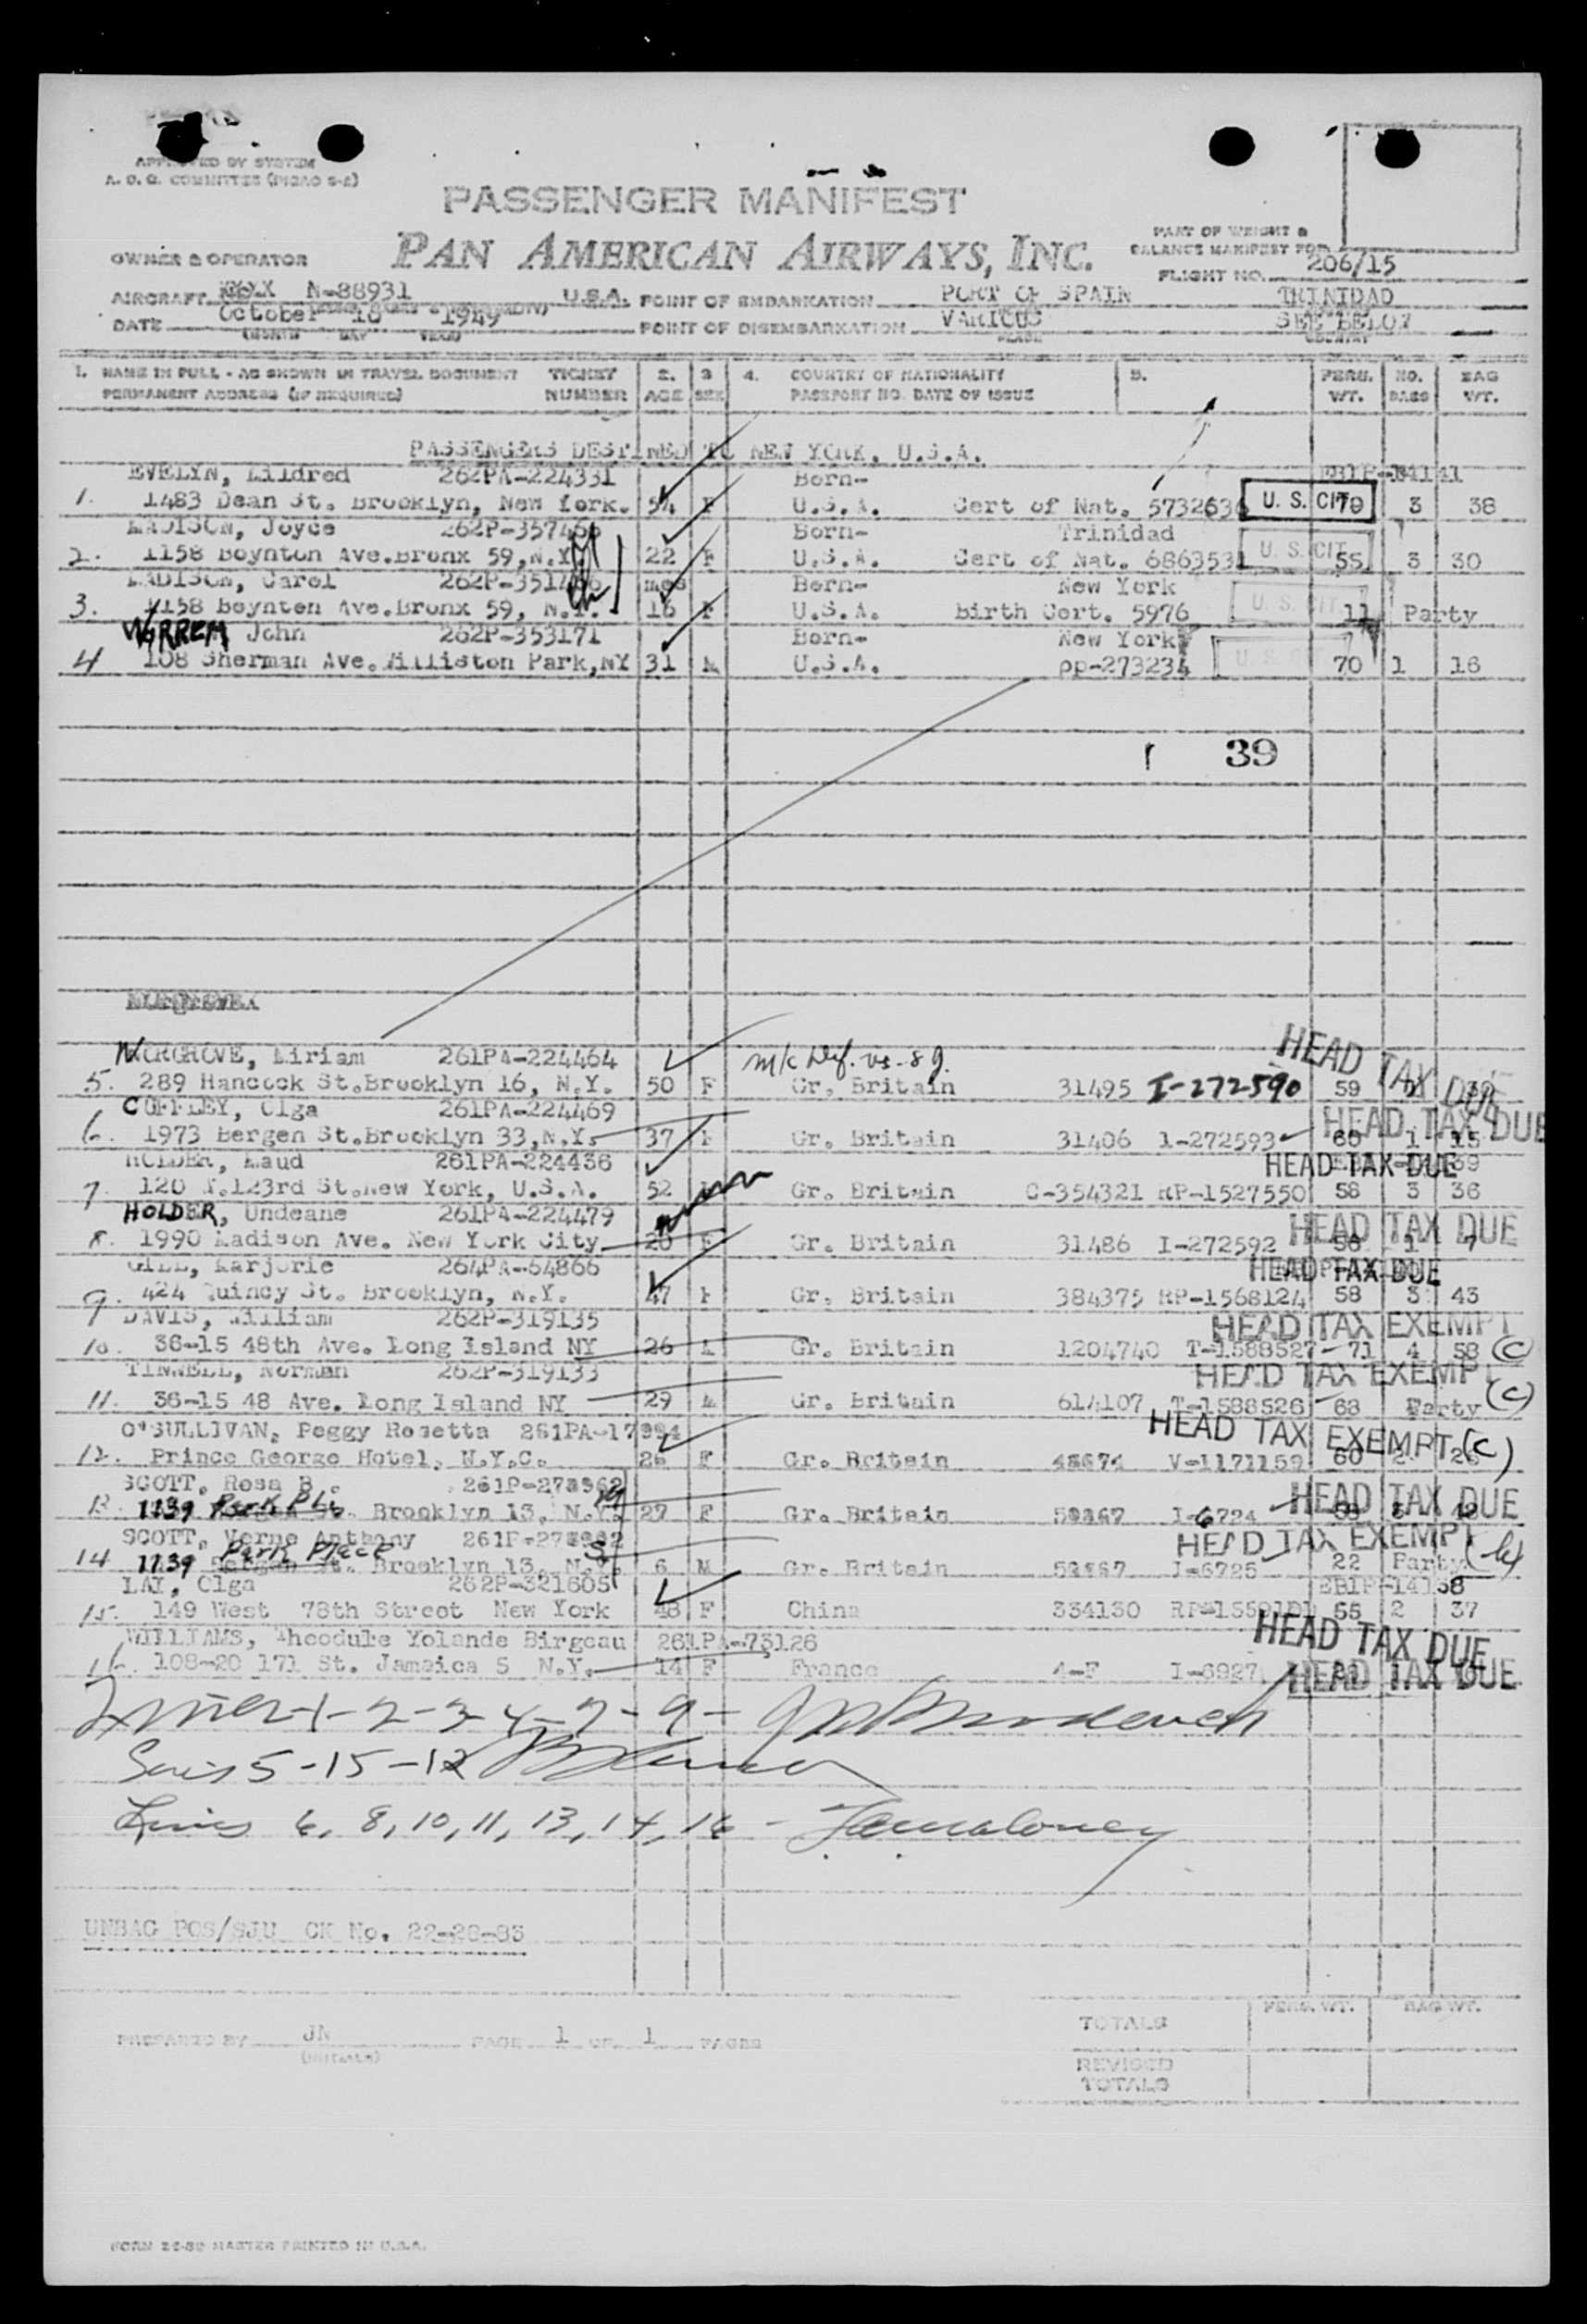 APPROVED BY SYSTEM
A. O. G. COMMITTEE
PASSENGER MANIFEST
OWNER & OPERATOR PAN AMERICAN AIRWAYS, INC.
PART OF WEIGHT &
BALANCE MANIFEST FOR
FLIGHT NO. 206/15
AIRCRAFT N-88931 U.S.A. POINT OF EMBARKATION PORT OF SPAIN TRINIDAD
DATE October 1949 POINT OF DISEMBARKATION VARIOUS SEE BELOW
(MONTH DAY YEAR) PLACE COUNTRY
1. NAME IN FULL - AS SHOWN IN TRAVEL DOCUMENT TICKET 2. 3 4. COUNTRY OF NATIONALITY 5. PERS. NO. BAG
PERMANENT ADDRESS (IF REQUIRED) NUMBER AGE SEX PASSPORT NO. DATE OF ISSUE WT. BAGS WT.
PASSENGERS DESTINED TO NEW YORK, U.S.A.
EVELYN, Mildred 262PA-224331 Born-
1. 1483 Dean St. Brooklyn, New York. 54 F U.S.A. Cert of Nat. 5732636 U. S. CIT 79 3 38
MADISON, Joyce 262P-357466 Born- Trinidad
2. 1158 Boynton Ave.Bronx 59,N.Y. 22 F U.S.A. Cert of Nat. 6863531 U. S. CIT 55 3 30
MADISON, Carol mos Born- New York
3. 1158 Boynton Ave.Bronx 59, N.Y. 16 F U.S.A. Birth Cert. 5976 U. S. CIT. 11 Party
WARREN John 262P-353171 Born- New York
4 108 Sherman Ave.Williston Park,NY 31 M U.S.A. pp-273234 U. S. CIT 70 1 16
39
NORGROVE, Miriam 261PA-224464
5. 289 Hancock St.Brooklyn 16, N.Y. 50 F Gr. Britain 31495 I-272590 59 HEAD TAX DUE
COFFLEY, Olga 261PA-224469
6. 1973 Bergen St.Brooklyn 33,N.Y. 37 F Gr. Britain 31406 1-272593 60 1 15 HEAD TAX DUE
HOLDER, Maud 261PA-224436 HEAD TAX DUE
7. 120 W.123rd St.New York, U.S.A. 52 Gr. Britain C-354321 RP-1527550 58 3 36
HOLDER, Undeane 261PA-224479 HEAD TAX DUE
8. 1990 Madison Ave. New York City 20 F Gr. Britain 31486 I-272592 58 1 7
GILL, Marjorie 264PA-64866 HEAD TAX DUE
9. 424 Quincy St. Brooklyn, N.Y. 47 F Gr. Britain 384375 RP-1568124 58 3 43
DAVIS, William 262P-319135 HEAD TAX EXEMPT
10. 36-15 48th Ave. Long Island NY 26 M Gr. Britain 1204740 T-1588527 71 4 58 (C)
TINNELL, Norman 262P-319133 HEAD TAX EXEMPT
11. 36-15 48 Ave. Long Island NY 29 M Gr. Britain 614107 T-1588526 68 Party (C)
O'SULLIVAN, Peggy Rosetta HEAD TAX EXEMPT (C)
12. Prince George Hotel, N.Y.C. 26 F Gr. Britain V-1171159 60 2
SCOTT, Rosa B. HEAD TAX DUE
13. 1139 Park Pl. Brooklyn 13, N.Y. 27 F Gr. Britain I-6724
SCOTT, Verne Anthony HEAD TAX EXEMPT
14 1139 Park Place Brooklyn 13, N.Y. 6 M Gr. Britain I-6725 22 Party
LAY, Olga 262P-321605
15. 149 West 78th Street New York 48 F China 334130 55 2 37
WILLIAMS, Theodule Yolande Birgeau 261PA-73126 HEAD TAX DUE
16. 108-20 171 St. Jamaica 5 N.Y. 14 F France 4-F I-6927 HEAD TAX DUE
1-2-3-4-7-9-
5-15-12
Lines 6, 8, 10, 11, 13, 14, 16 -
UNBAG POS/SJU CK No. 22-26-83
PREPARED BY JN PAGE 1 OF 1 PAGES
(INITIALS)
PERS. WT. BAG WT.
TOTALS
REVISED
TOTALS
MASTER PRINTED IN U.S.A.